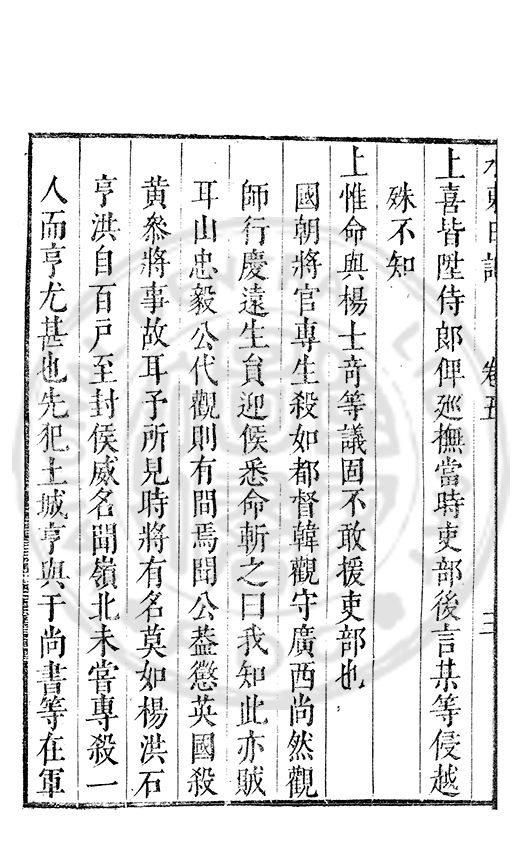 水東日記 卷五 三
上喜皆陞侍郎俾廵撫當時吏部後言某等侵越
殊不知
上惟命與楊士奇等議固不敢援吏部也
國朝將官專生殺如都督韓觀守廣西尚然觀
師行慶遠生員迎候悉命斬之曰我知此亦賊
耳山忠毅公代觀則有間焉聞公葢懲英國殺
黄叅將事故耳予所見時將有名莫如楊洪石
亨洪自百戸至封侯威名聞嶺北未嘗專殺一
人而亨尤甚也先犯土城亨與于尚書等在軍